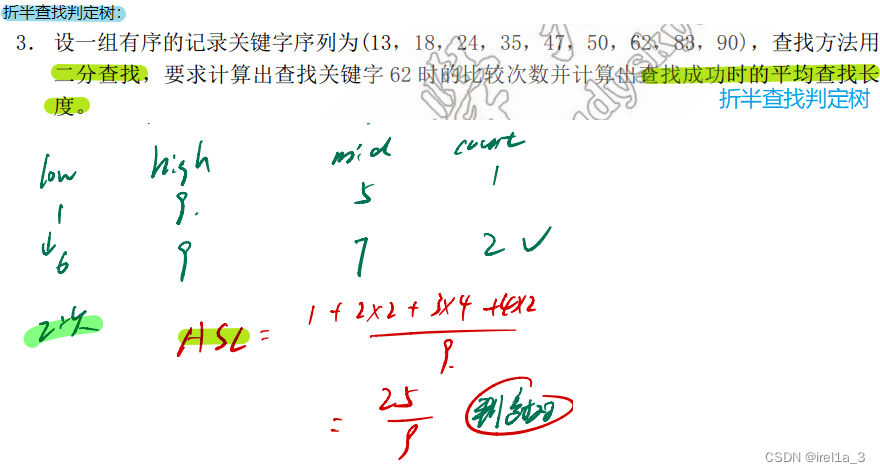 折半查找判定树:
3. 设一组有序的记录关键字序列为(13，18，24，35，47，50，62，83，90)，查找方法用
二分查找，要求计算出查找关键字 62 时的比较次数并计算出查找成功时的平均查找长
度。
折半查找判定树
low high mid count
1 9. 5 1
↓6 9 7 2 ✓
2次
ASL = 1 + 2×2 + 3×4 + 4×2
9.
= 25
9
CSDN @irel1a_3